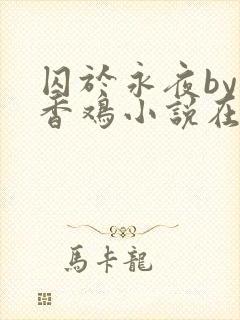 囚於永夜by
香鸡小說在
馬卡龍